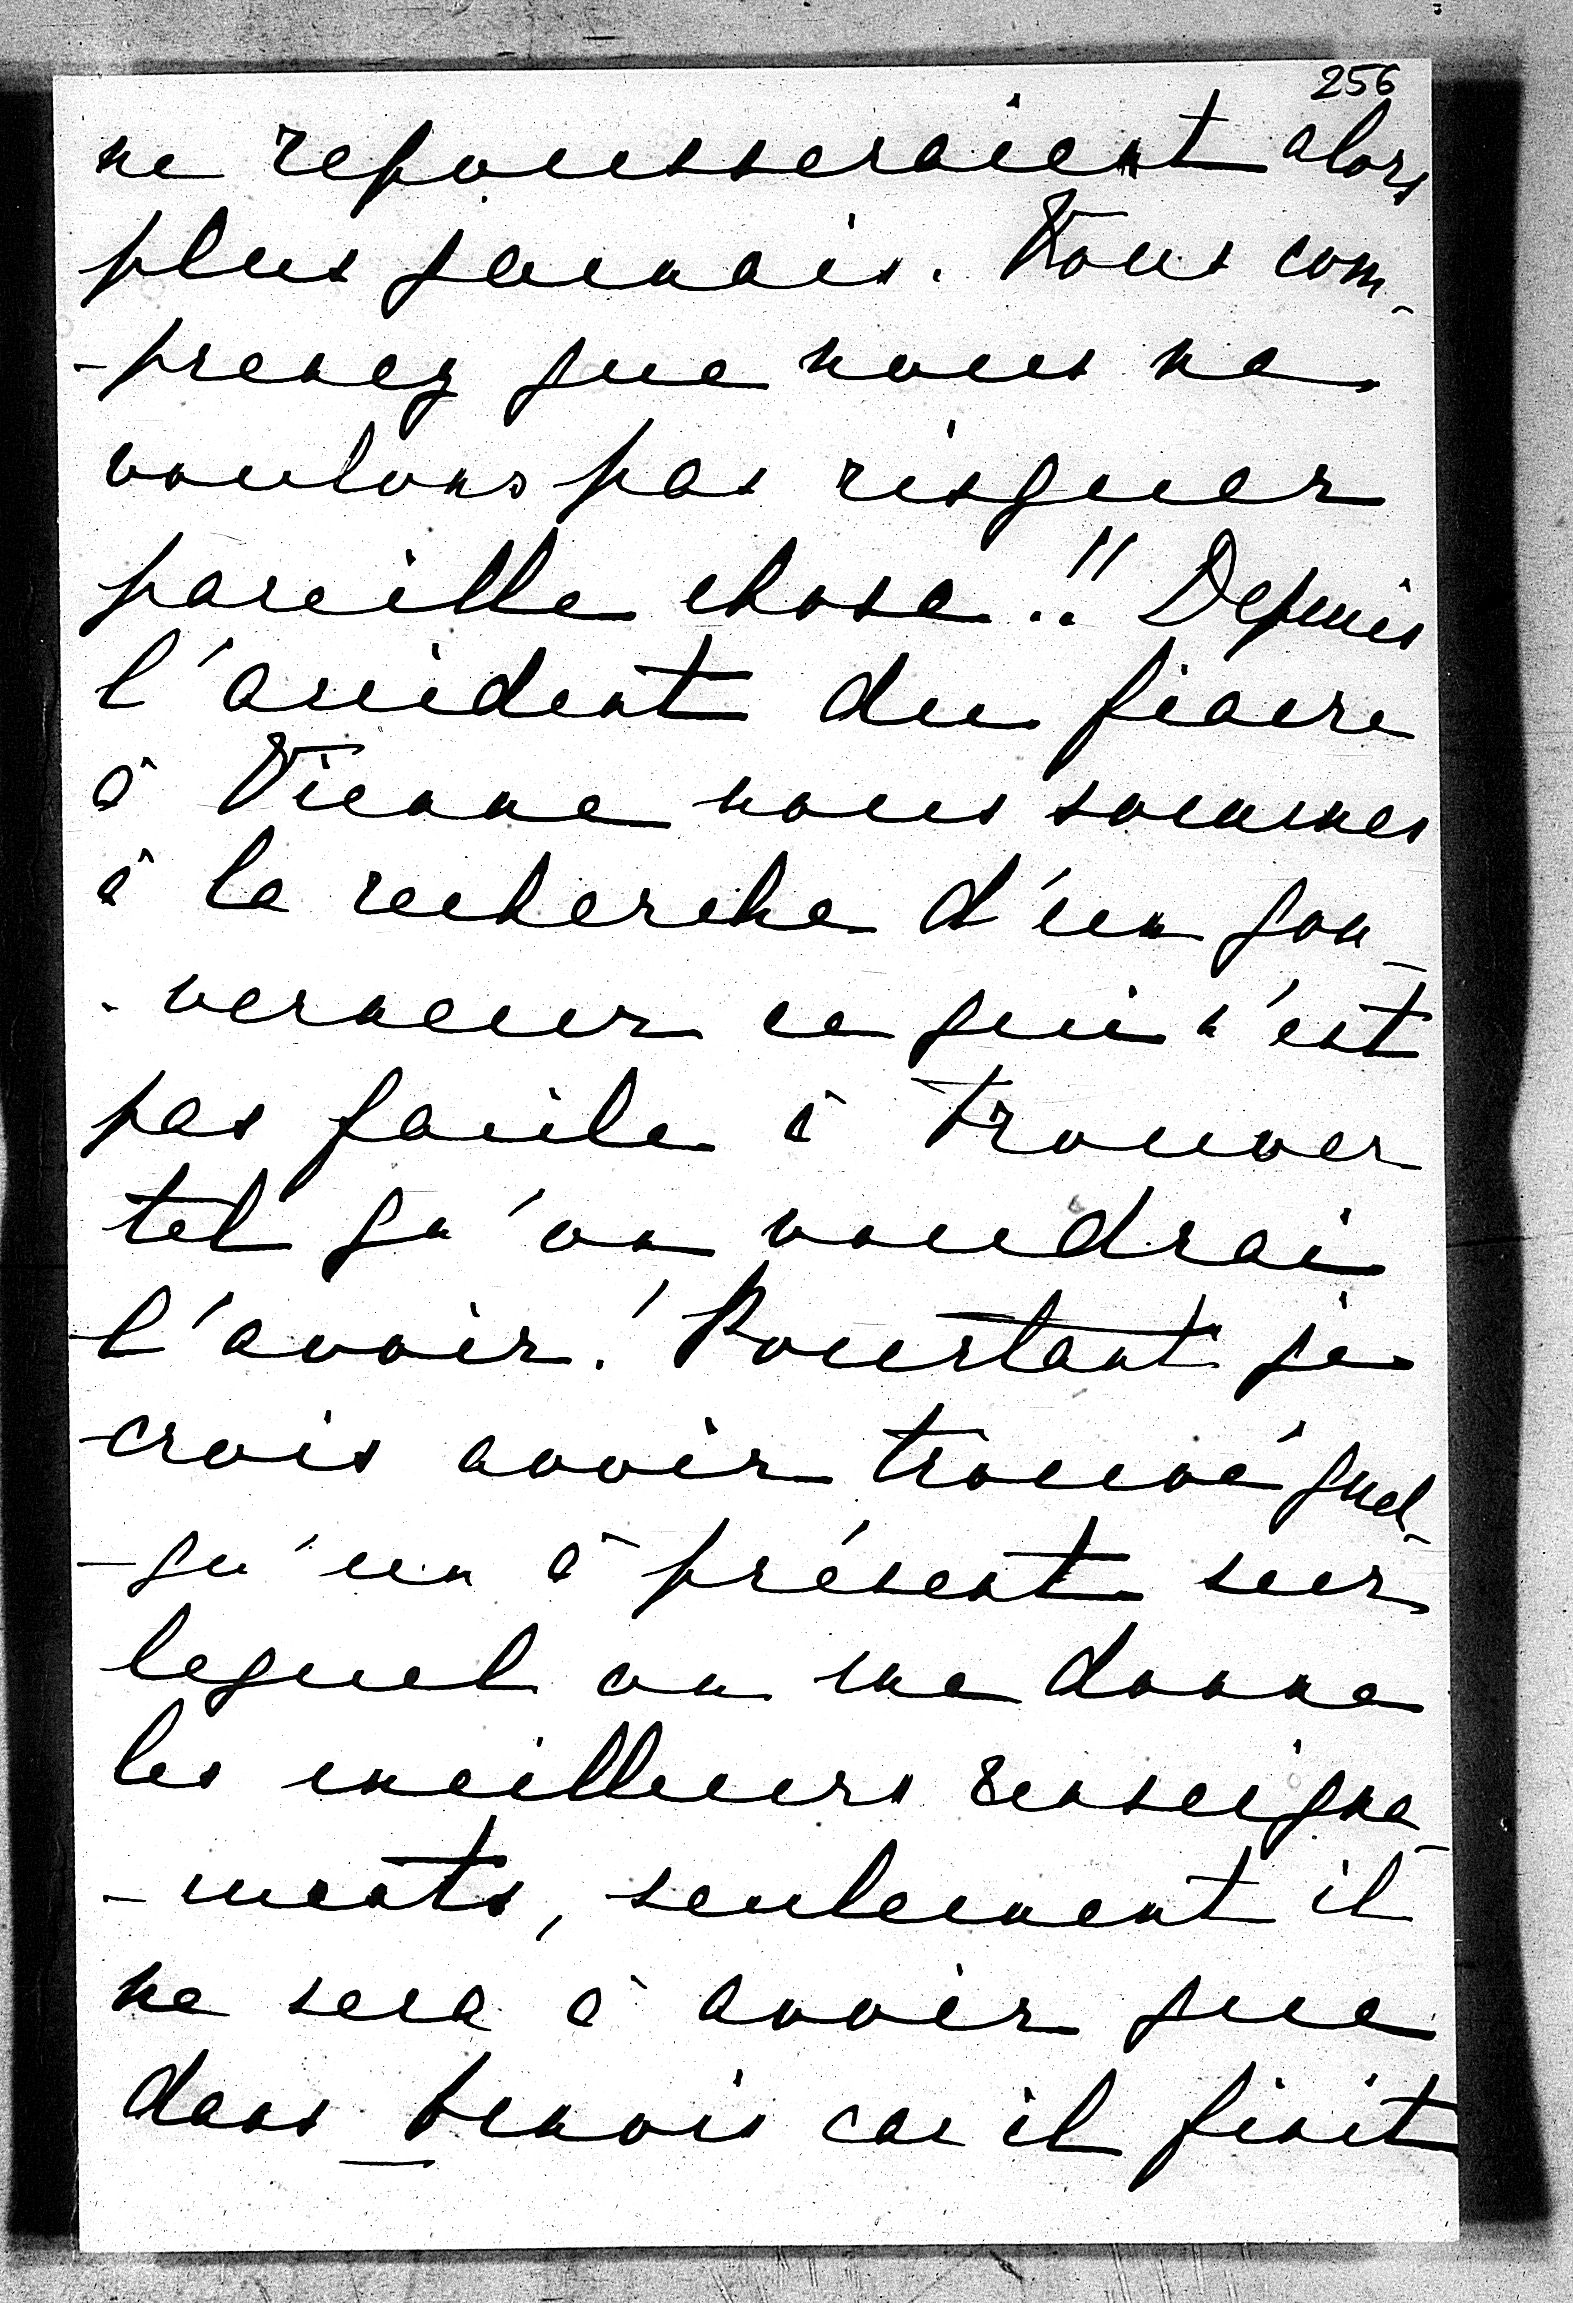 256
ne repousseraient alors
plus jamais. Vous com-
-prenez que nous ne
voulons pas risquer
pareille chose!! Depuis
l'accident du fiacre
à Vienne nous sommes
à la recherche d'un gou-
-verneur ce qui n'est
pas facile à trouver
tel qu'on voudrai
l'avoir! Pourtant je
crois avoir trouvé quel-
-qu'un à présent sur
lequel on me donne
les meilleurs renseigne-
-ments, seulement il
ne sera à avoir que
dans mois car il finit